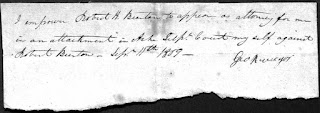 I empower Robert H Burton to appear as attorney for me
in an attachment in Ash Supr. Court my self against
Robert Burton Septr. 11th 1807 —
Geo Kruger